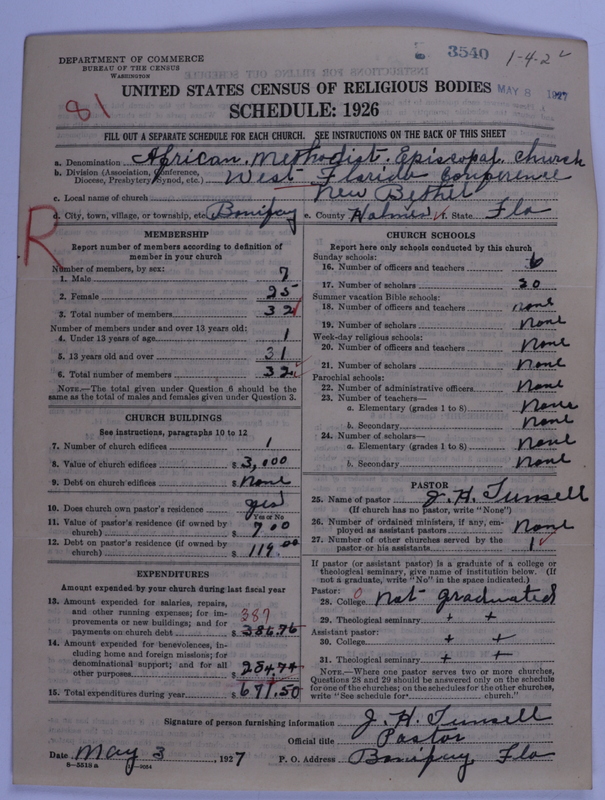 DEPARTMENT OF COMMERCE
BUREAU OF THE CENSUS
WASHINGTON
3540
1-4-2
81
UNITED STATES CENSUS OF RELIGIOUS BODIES
MAY 8 1927
SCHEDULE: 1926
FILL OUT A SEPARATE SCHEDULE FOR EACH CHURCH. SEE INSTRUCTIONS ON THE BACK OF THIS SHEET
a. Denomination African Methodist Episcopal Church
b. Division (Association, Conference, Diocese, Presbytery, Synod, etc.) West Florida Conference
c. Local name of church New Bethel
d. City, town, village, or township, etc. Bonifay e. County Holmes f. State Fla
R
MEMBERSHIP
Report number of members according to definition of member in your church
Number of members, by sex:
1. Male 7
2. Female 25
3. Total number of members 32
Number of members under and over 13 years old:
4. Under 13 years of age 1
5. 13 years old and over 31
6. Total number of members 32
NOTE.—The total given under Question 6 should be the same as the total of males and females given under Question 3.
CHURCH BUILDINGS
See instructions, paragraphs 10 to 12
7. Number of church edifices 1
8. Value of church edifices $ 3,000
9. Debt on church edifices $ None
10. Does church own pastor's residence yes
Yes or No
11. Value of pastor's residence (if owned by church) $ 700
12. Debt on pastor's residence (if owned by church) $ 119.00
EXPENDITURES
Amount expended by your church during last fiscal year
13. Amount expended for salaries, repairs, and other running expense; for improvements or new buildings; and for payments on church debt $ 386.76
387
14. Amount expended for benevolences, including home and foreign missions; for denominational support; and for all other purposes $ 284.74
15. Total expenditures during year $ 671.50
CHURCH SCHOOLS
Report here only schools conducted by this church
Sunday schools:
16. Number of officers and teachers 6
17. Number of scholars 20
Summer vacation Bible schools:
18. Number of officers and teachers none
19. Number of scholars none
Week-day religious schools:
20. Number of officers and teachers none
21. Number of scholars none
Parochial schools:
22. Number of administrative officers none
23. Number of teachers—
a. Elementary (grades 1 to 8) none
b. Secondary none
24. Number of scholars—
a. Elementary (grades 1 to 8) none
b. Secondary none
PASTOR
25. Name of pastor J. H. Tunsell
(If church has no pastor, write "None")
26. Number of ordained ministers, if any, employed as assistant pastors none
27. Number of other churches served by the pastor or his assistants 1
If pastor (or assistant pastor) is a graduate of a college or theological seminary, give name of institution below. (If not a graduate, write "No" in the space indicated.)
Pastor: 0
28. College not graduated
29. Theological seminary + +
Assistant pastor:
30. College + +
31. Theological seminary + +
NOTE.—Where one pastor serves two or more churches, Questions 28 and 29 should be answered only on the schedule for one of the churches; on the schedules for the other churches, write "See schedule for church."
Signature of person furnishing information J. H. Tunsell
Official title Pastor
Date May 3 1927 P. O. Address Bonifay, Fla
8-5518a